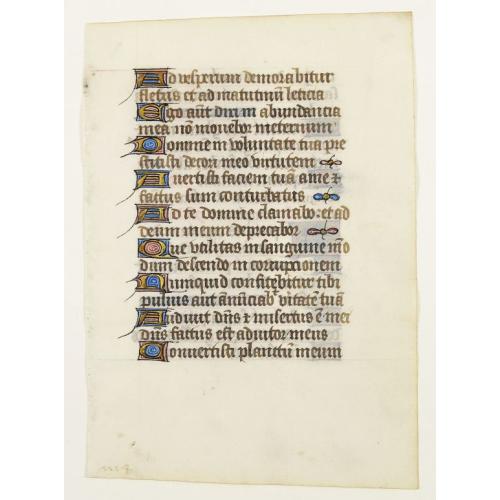 Ad vesperum demorabitur
fletus et ad matutinū leticia
Ego aūt dixi in abundancia
mea nō movebor ineternum
Domine in voluntate tua pre
stitisti decori meo virtutem
Avertisti faciem tuā a me ⁊
factus sum conturbatus
Ad te domine clamabo: et ad
deum meum deprecabor
Que utilitas in sanguine meo
dum descendo in corrupcionem
Numquid confitebitur tibi
pulvis aut ānūciab' vitatem tuā
Audivit dn̄s ⁊ misertus ē mei
dn̄s factus est adiutor meus
Convertisti planctū meum